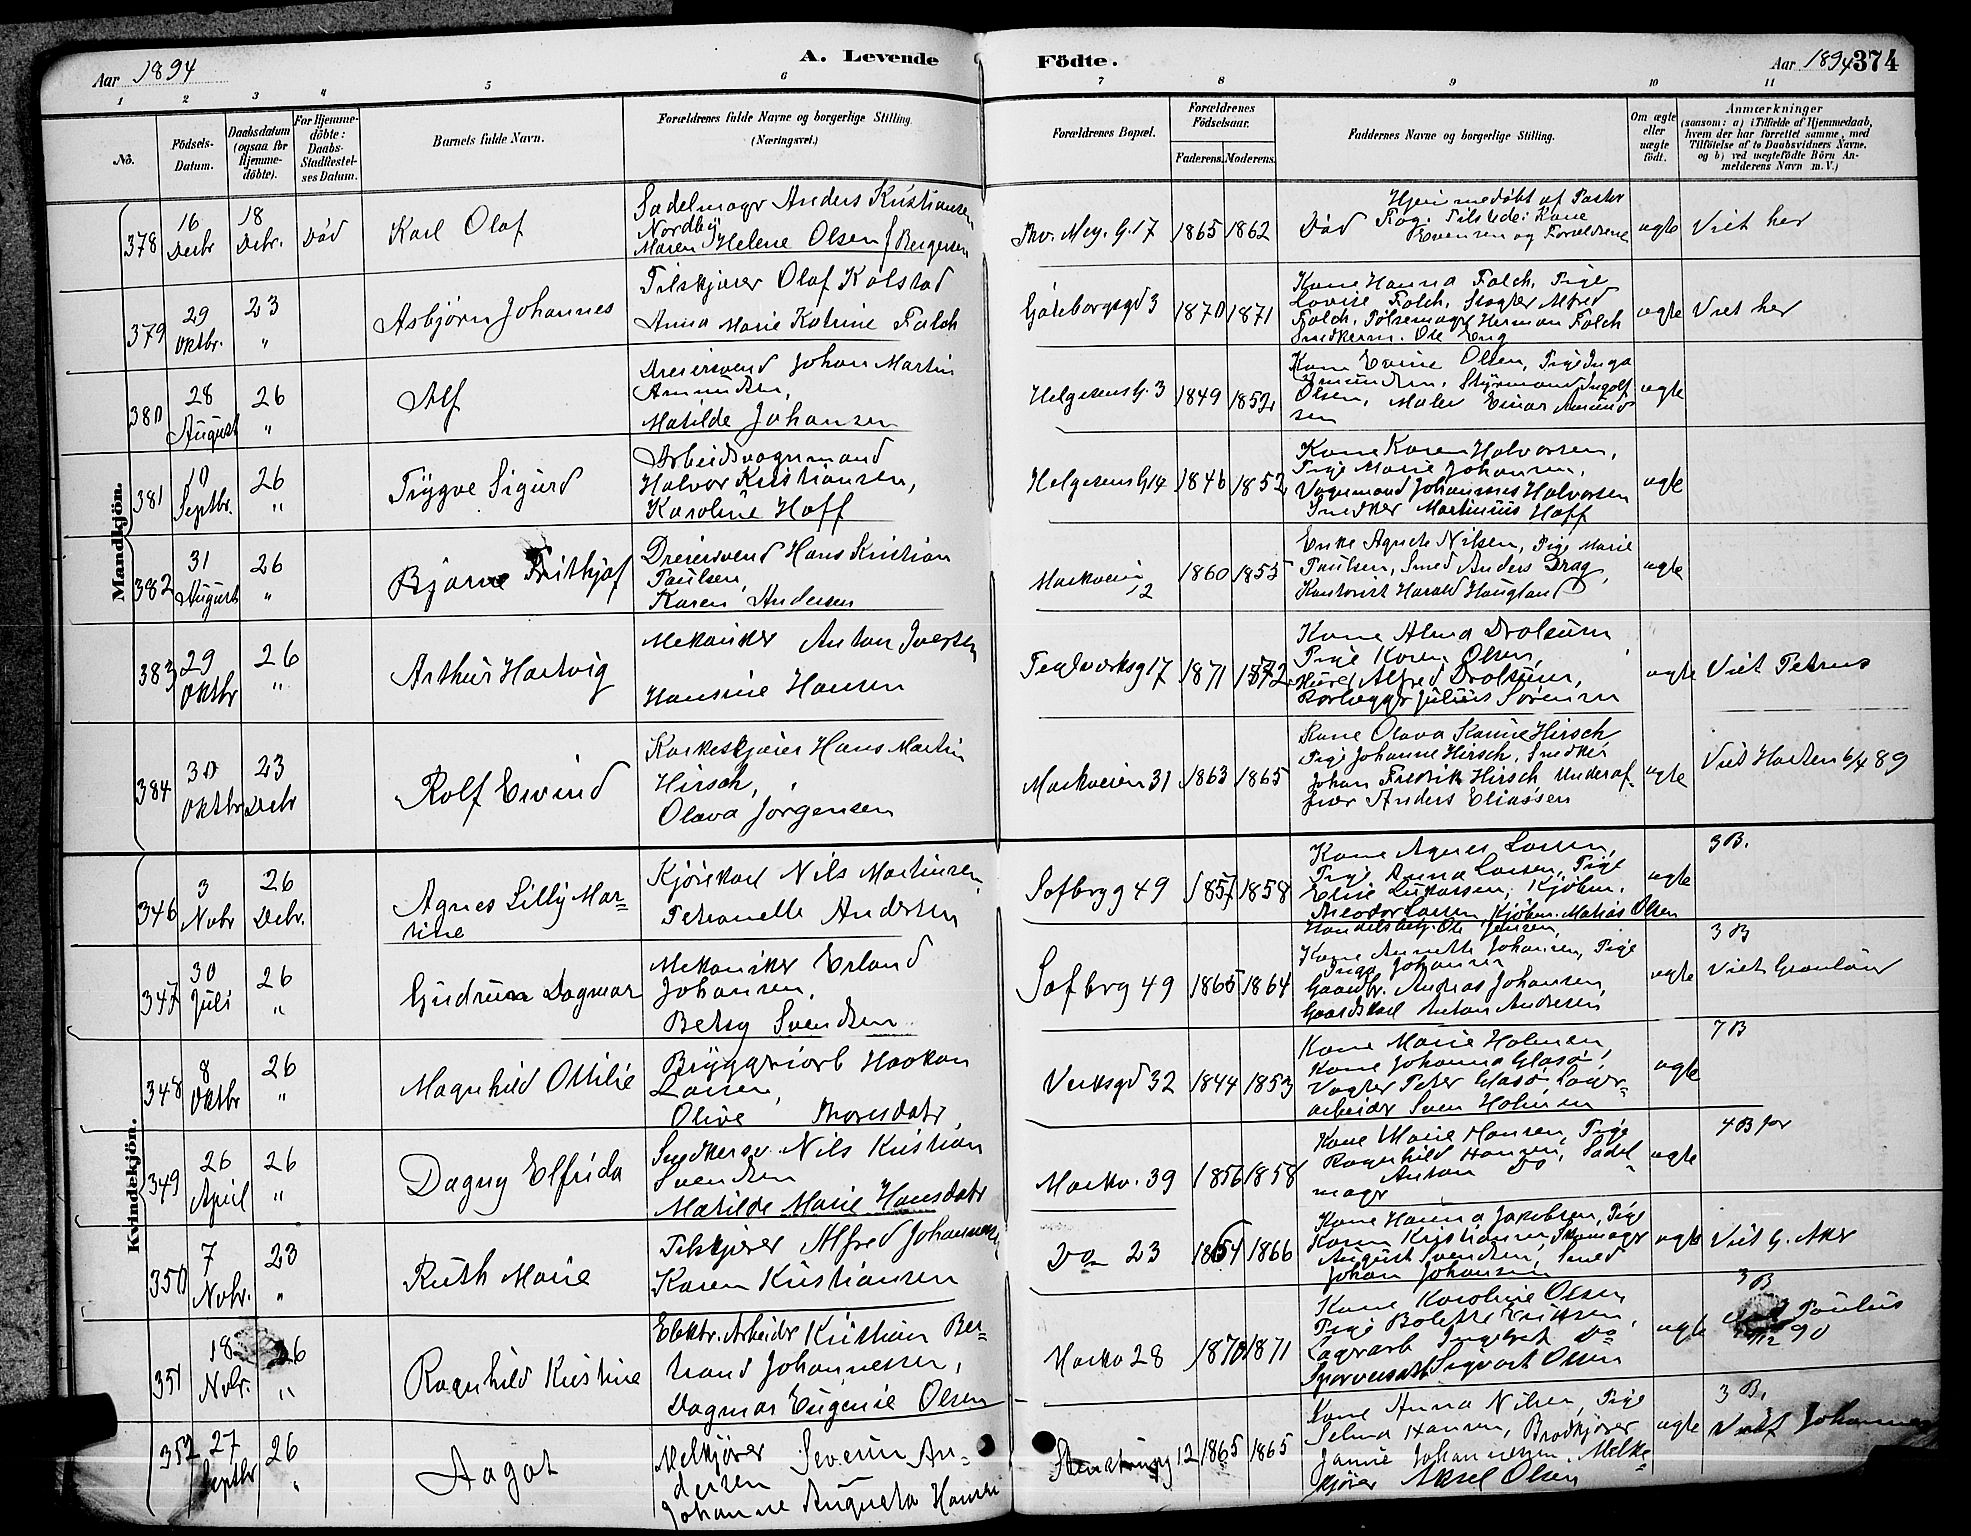 Aar 1894
A. Levende
Födte.
Aar 1894
374
1 2 3 4 5 6 7 8 9 10 11
No.
Födsels-
Datum.
Daabsdatum
(ogsaa for
Hjemme-
döbte).
For Hjemme-
döbte:
Daabs-
Stadfæstel-
ses Datum.
Barnets fulde Navn.
Forældrenes fulde Navne og borgerlige Stilling.
(Næringsvei.)
Forældrenes Bopæl.
Forældrenes
Födselsaar.
Faderens.
Moderens.
Faddernes Navne og borgerlige Stilling.
Om ægte
eller
uægte
födt.
Anmærkninger
(saasom: a) i Tilfælde af Hjemmedaab,
hvem der har forrettet samme, med
Tilföielse af to Daabsvidners Navne,
og b) ved uægtefödte Börn An-
melderens Navn m. V.)
Mandkjön.
378
16
Decbr
18
Decbr.
Död
Karl Olaf
Sadelmagr Anders Kristiansen
Nordby
Maren Helene Olsen f Bergersen
1865 1862
Hjemmedöbt af Pastor
Död
Evensen og Forældrene
ægte
Viet her
379
29
Oktbr.
23
"
Asbjørn Johannes
Tilskjærer Olaf Kolstad
Anna Marie Katrine Falch
Göteborgsgd 3
1870 1871
Kone Hanna Falch, Pige
Lovise Falch, Slagter Alfred
Falch, Pölsemagr Herman Falch
Snedkerm. Ole Eng
ægte
Viet her
380
28
August
26
"
Alf
Dreiersvend Johan Martin
Amundsen,
Matilde Johansen
Helgesens G. 3
1849 1852
Kone Evine Olsen, Pige Inga
Amundsen, Styrmand Ingolf
Olsen, Maler Einar Amund
sen
ægte
381
10
Septbr.
26
"
Trygve Sigurd
Arbeidsvognmand
Halvor Kristiansen,
Karoline Hoff
Helgesens G 14
1846 1852
Kone Karen Halvorsen,
Pige Marie Johansen,
Vognmand Johannes Halvorsen
Snedker Martinius Hoff
ægte
382
31
August
26
"
Bjarne Frithjof
Dreiersvend Hans Kristian
Paulsen,
Karen Andersen
Markveien
12
1860 1855
Enke Agnete Nilsen, Pige Marie
Paulsen, Smed Anders Drag,
Kontorist Harald Haugland
ægte
383
29
Oktbr
26
"
Arthur Hartvig
Mekaniker Anton Iversen
Hansine Hansen
Teglverksg 17
1871 1872
Kone Alma Drolsum
Pige Karen Olsen,
Alfred Drolsum,
Rörlegger Julius Sörensen
ægte
Viet Petrus
384
30
Oktbr
23
Decbr
Rolf Eivind
Korkeskjærer Hans Martin
Hirsch,
Olava Jörgensen
Markveien 31
1863 1865
Kone Olava Hirsch
Pige Johanne Hirsch, Snedker
Johan Fredrik Hirsch Underof-
ficer Anders Eliassen
ægte
Viet Horten 6/4 89
Kvindekjön.
346
3
Nobr
26
Decbr.
Agnes Lilly Mar=
tine
Kjörekarl Nils Martinsen
Petronelle Andersen
Sofbrgg 49
1857 1858
Kone Agnes Larsen,
Pige Anna Larsen, Pige
Elise Lukassen, Kjöbm.
Theodor Larsen, Kjöbm. Matias Olsen
ægte
3 B.
347
30
Juli
26
"
Gudrun Dagmar
Mekaniker Erland
Johansen,
Betsy Svendsen
Sofbrg 49
1865 1864
Handelsbetj. Ole Jensen,
Kone Annette Johansen, Pige
Inga Johansen
Gaardbr. Andreas Johansen,
Gaardskarl Anton Andresen
ægte
3 B
Viet Grönland
348
8
Oktbr
26
"
Magnhild Ottilie
Bryggriarb Haakon
Larsen,
Olive Thoresdatr
Verksgd 32
1844 1853
Kone Marie Holmen,
Kone Johanna Glasö,
Vagter Peter Glasö, Lager-
arbeider Sven Holmen
ægte
7 B
349
26
April
26
"
Dagny Elfrida
Snedkersv. Nils Kristian
Svendsen
Matilde Marie Hansdatr
Markv. 39
1856 1858
Kone Marie Hansen, Pige
Ragnhild Hansen, Sadel-
magr Anton Do
ægte
4 B för
350
7
Nobr.
23
"
Ruth Marie
Tilskjærer Alfred Johannesen
Karen Kristiansen
Do 23
1864 1866
Kone Hanna Jakobsen, Pige
Karen Kristiansen, Skomager
August Svendsen, Smed
Johan Johansen
ægte
Viet G. Aker
351
18
Nobr.
26
"
Ragnhild Kristine
Elektr. Arbeider Kristian Ber=
trand Johannessen,
Dagmar Eugenie Olsen
Markv 28
1870 1871
Kone Karoline Olsen
Pige Bolette Eriksen,
Lagerarb Ingebret Do
Sporveisbet Sigvart Olsen
ægte
3 B
Paulus
90
352
27
Septbr
26
"
Aagot
Melkjörer Severin An-
dersen
Johanne Augusta Hansen
Stenstrupg 12
1865 1865
Kone Anna Nilsen, Pige
Selma Hansen, Brödkjörer
Johannessen, Melke=
kjörer Aksel Olsen
ægte
3 B.
Viet Johannes